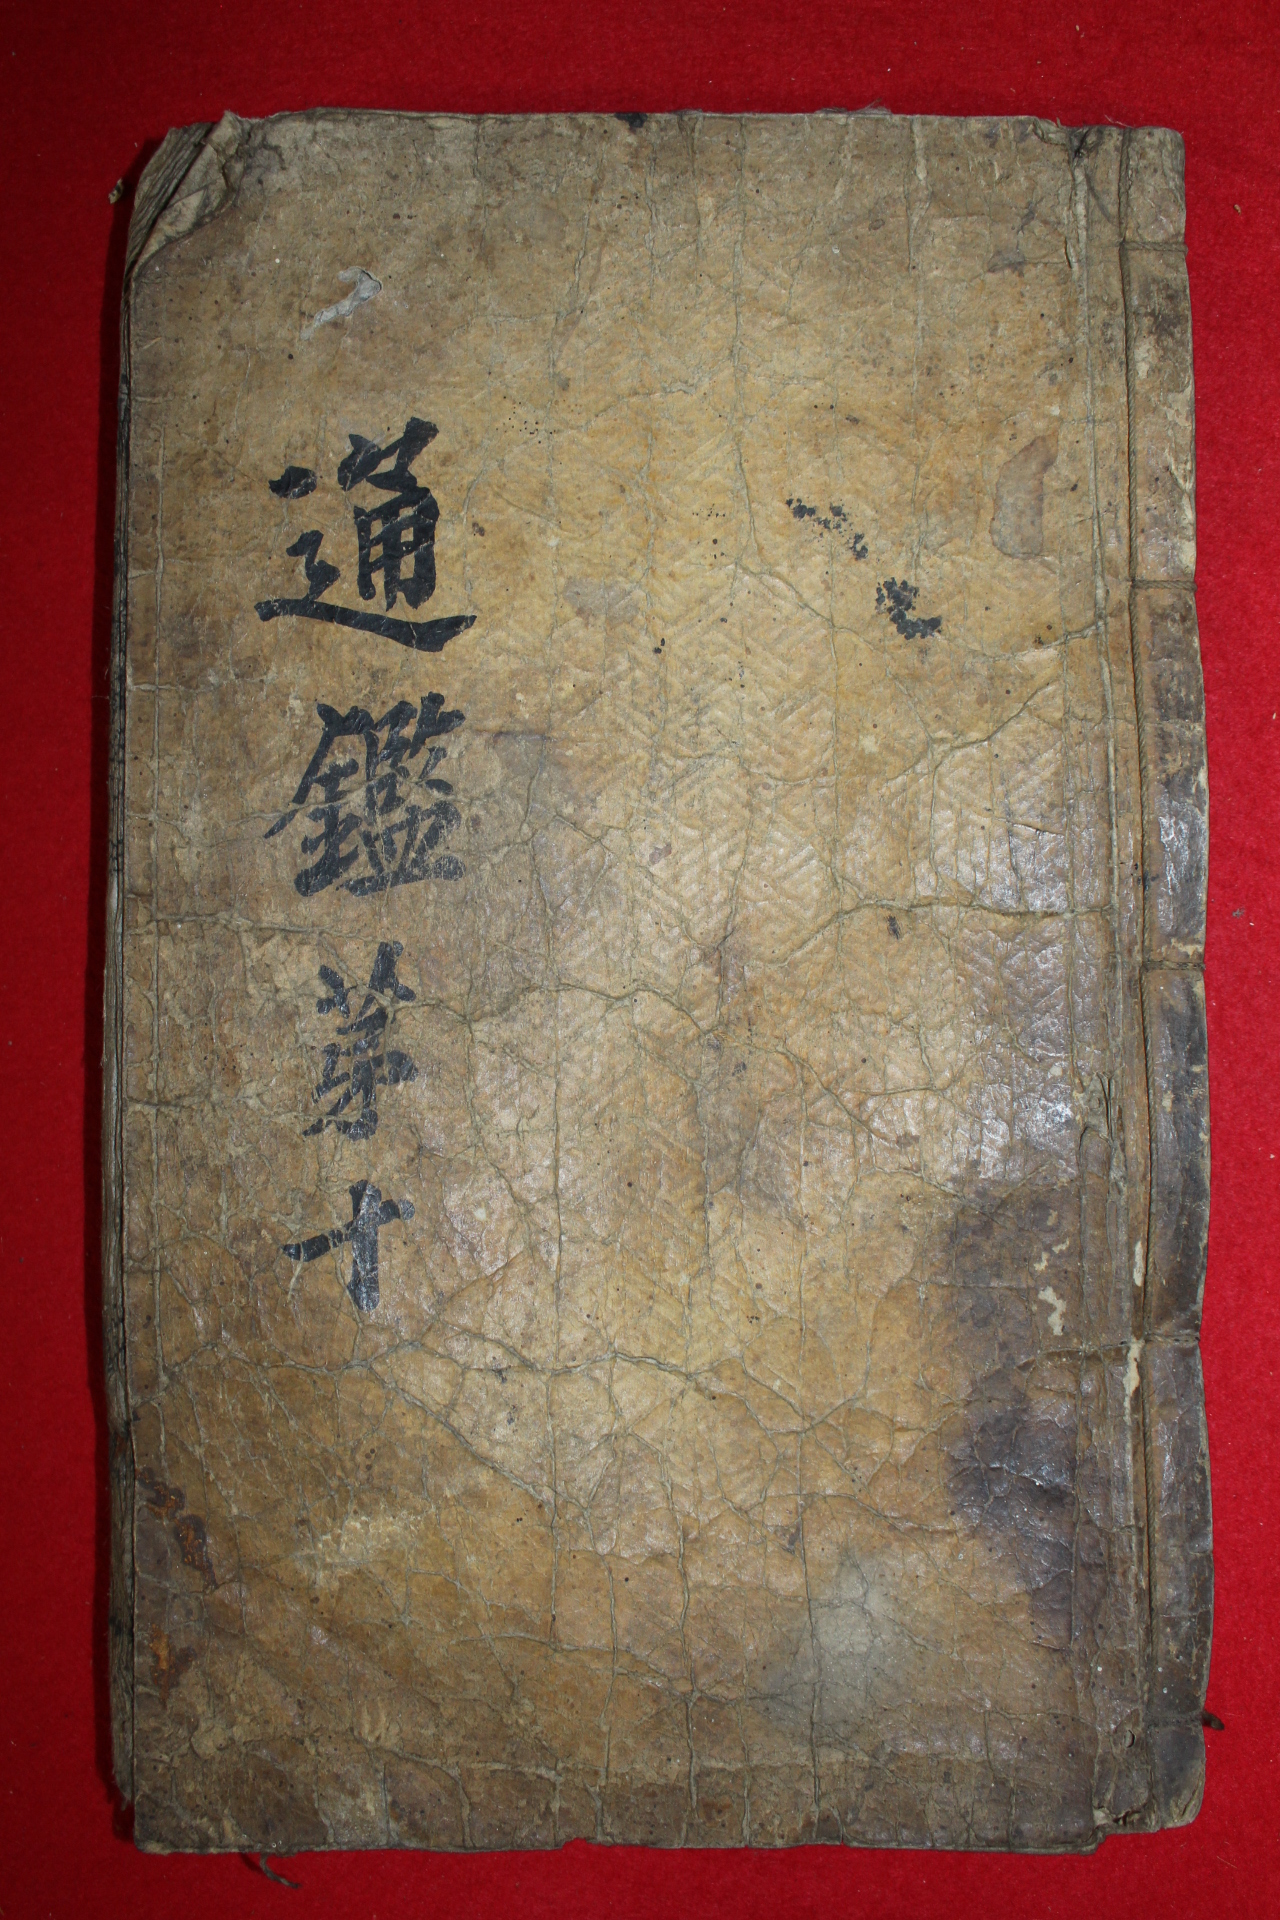 通鑑第十